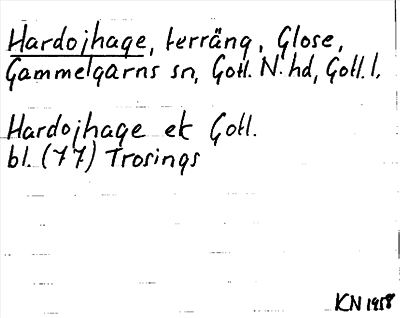 Hardojhage, terräng, Glose,
Gammelgarns sn, Gotl. N. hd, Gotl. l.
Hardojhage ek Gotl.
bl. (77) Trosings
KN 1958